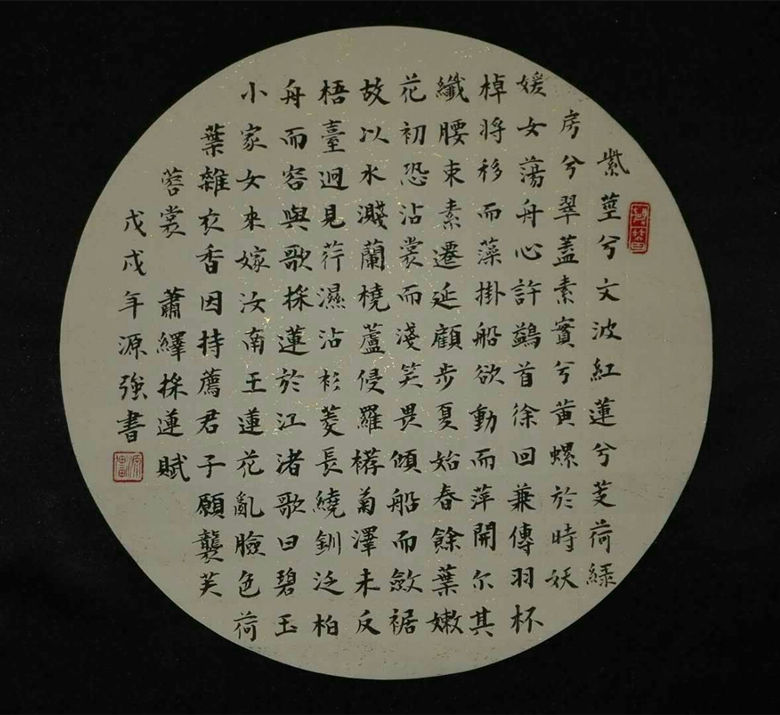 紫莖兮文波紅蓮兮芰荷綠
房兮翠蓋素實兮黃螺於時妖
媛女蕩舟心許鷁首徐回兼傳羽杯
棹將移而藻掛船欲動而萍開尔其
纖腰束素遷延顧步夏始春餘葉嫩
花初恐沾裳而淺笑畏傾船而斂裾
故以水濺蘭橈蘆侵羅菊澤未反
梧臺迴見荇濕沾衫菱長繞釧泛柏
舟而容與歌採蓮於江渚歌曰碧玉
小家女來嫁汝南王蓮花亂臉色荷
葉雜衣香因持薦君子願襲芙
蓉裳 蕭繹採蓮賦
戊戌年源強書